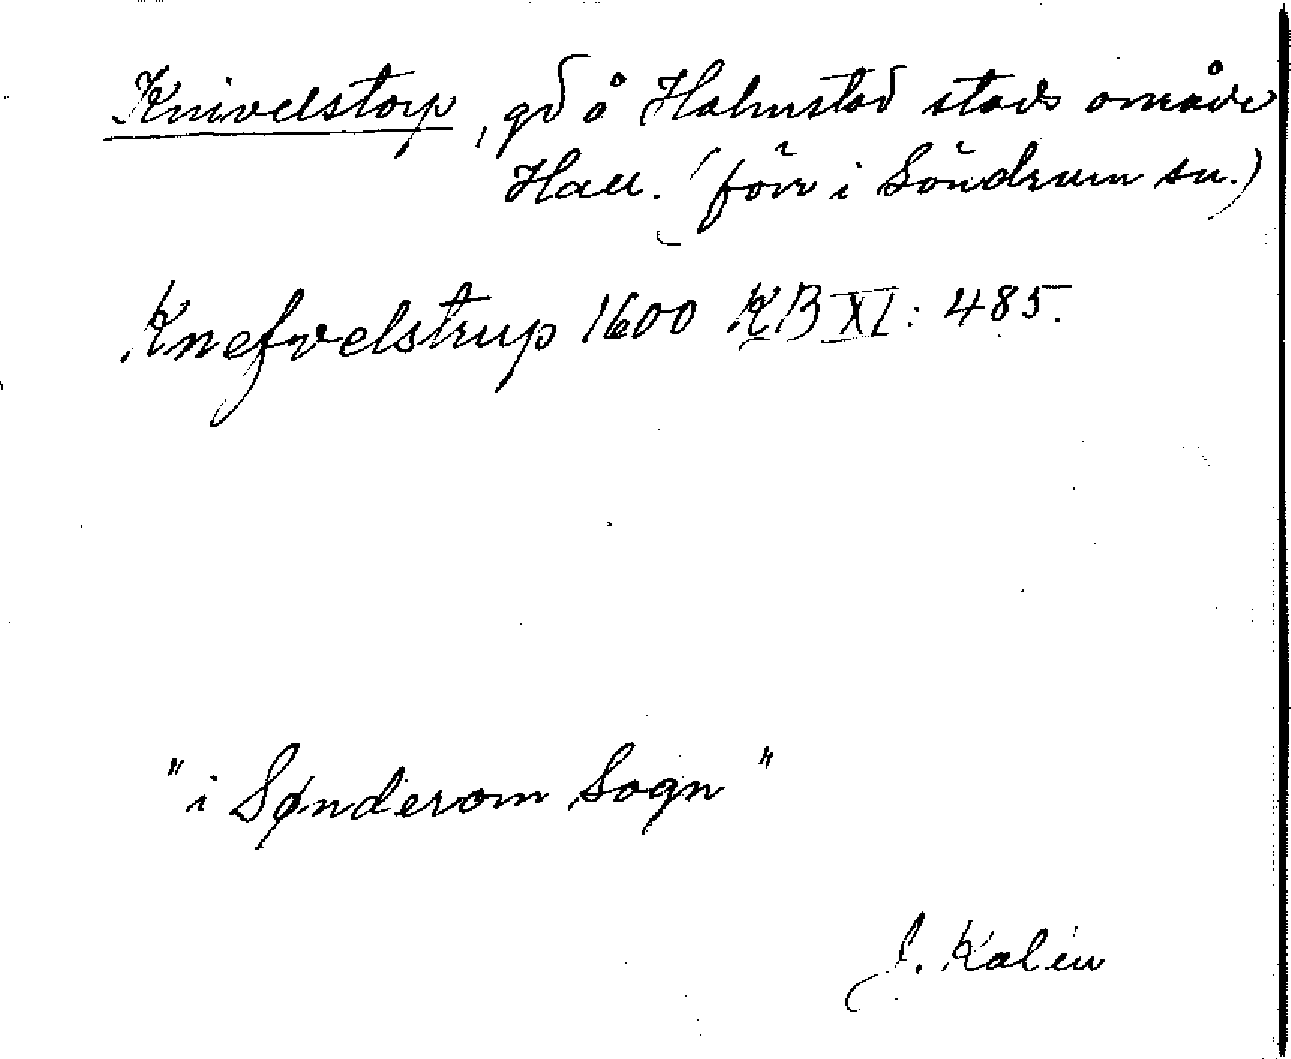 Knivelstorp, gd å Halmstad stads område
Hall. (förr i Söndrum sn.)
Knefvelstrup 1600 KB XI: 485.
"i Sønderom Sogn"
J. Kalén